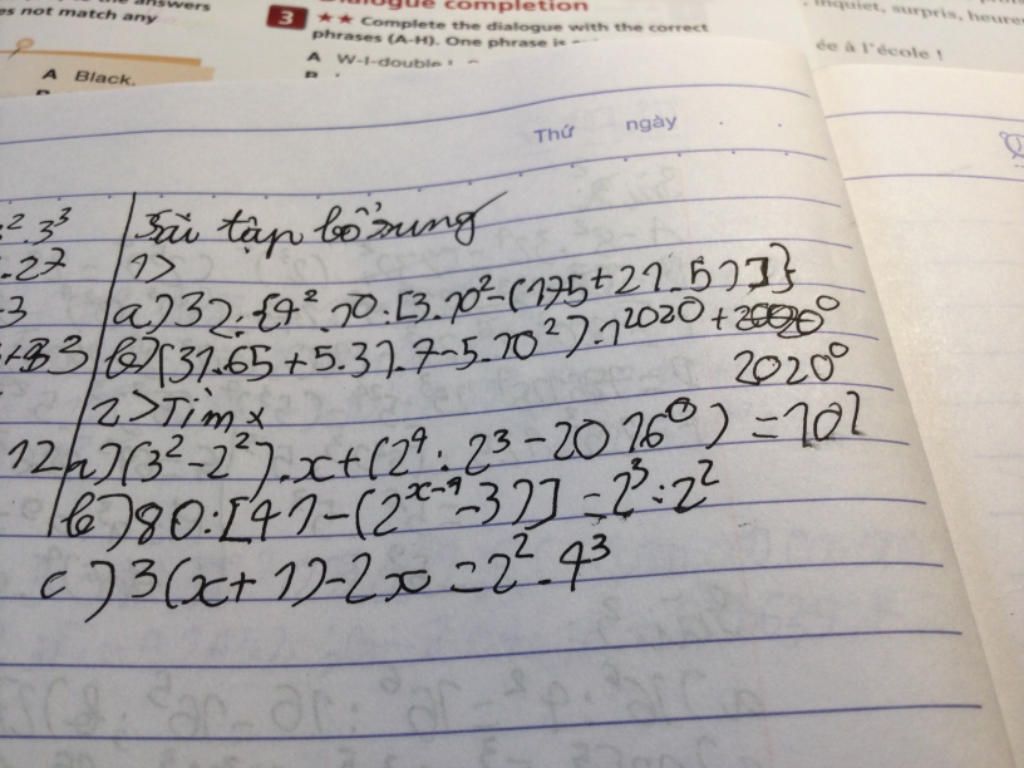 answers
es not match any
Dialogue completion
3 ★★ Complete the dialogue with the correct
phrases (A-H). One phrase is
A W-I-double
A Black.
inquiet, surpris, heureu
ée à l'école !
Thứ ngày
².3³
.2⁷
-3
12
Bài tập bổ sung
1>
a) 32:{4².10:[3.10²-(175+21.5)]}
b) (31.65+5.31.7-5.10²).1²⁰²⁰+
2020⁰
2> Tìm x
a) (3²-2²).x+(2⁴:2³-2016⁰)=101
b) 80:[41-(2ˣ⁻⁴-37)]=2³:2²
c) 3(x+1)-2x=2².4³